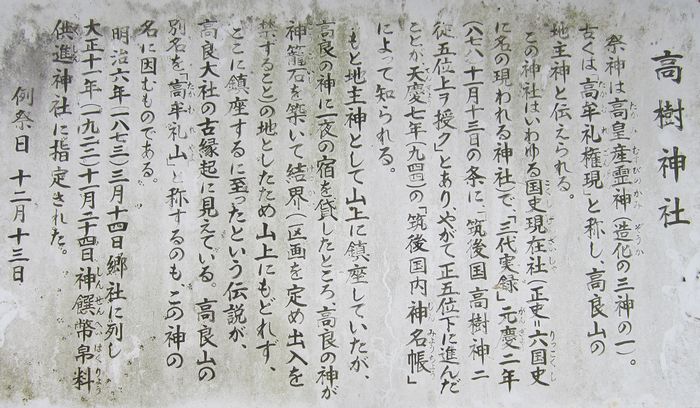 高樹神社
祭神は高皇産霊神(造化の三神の一)。
古くは「高牟礼権現」と称し、高良山の
地主神と伝えられる。
この神社はいわゆる国史現在社(正史=六国史
に名の現われる神社)で、「三代実録」元慶二年
(八七八)十一月十三日の条に、「筑後国高樹神ニ
従五位上ヲ授ク」とあり、やがて正五位下に進んだ
ことが天慶七年(九四四)の「筑後国内神名帳」
によって知られる。
もと地主神として山上に鎮座していたが、
高良の神に一夜の宿を貸したところ、高良の神が
神籠石を築いて結界(区画を定め出入を
禁すること)の地としたため山上にもどれず、
ここに鎮座するに至ったという伝説が、
高良大社の古縁起に見えている。高良山の
別名を「高牟礼山」と称するのも、この神の
名に因むものである。
明治六年(一八七三)三月十四日郷社に列し
大正十一年(一九二二)十一月二十四日神饌幣帛料
供進神社に指定された。
例祭日 十二月十三日